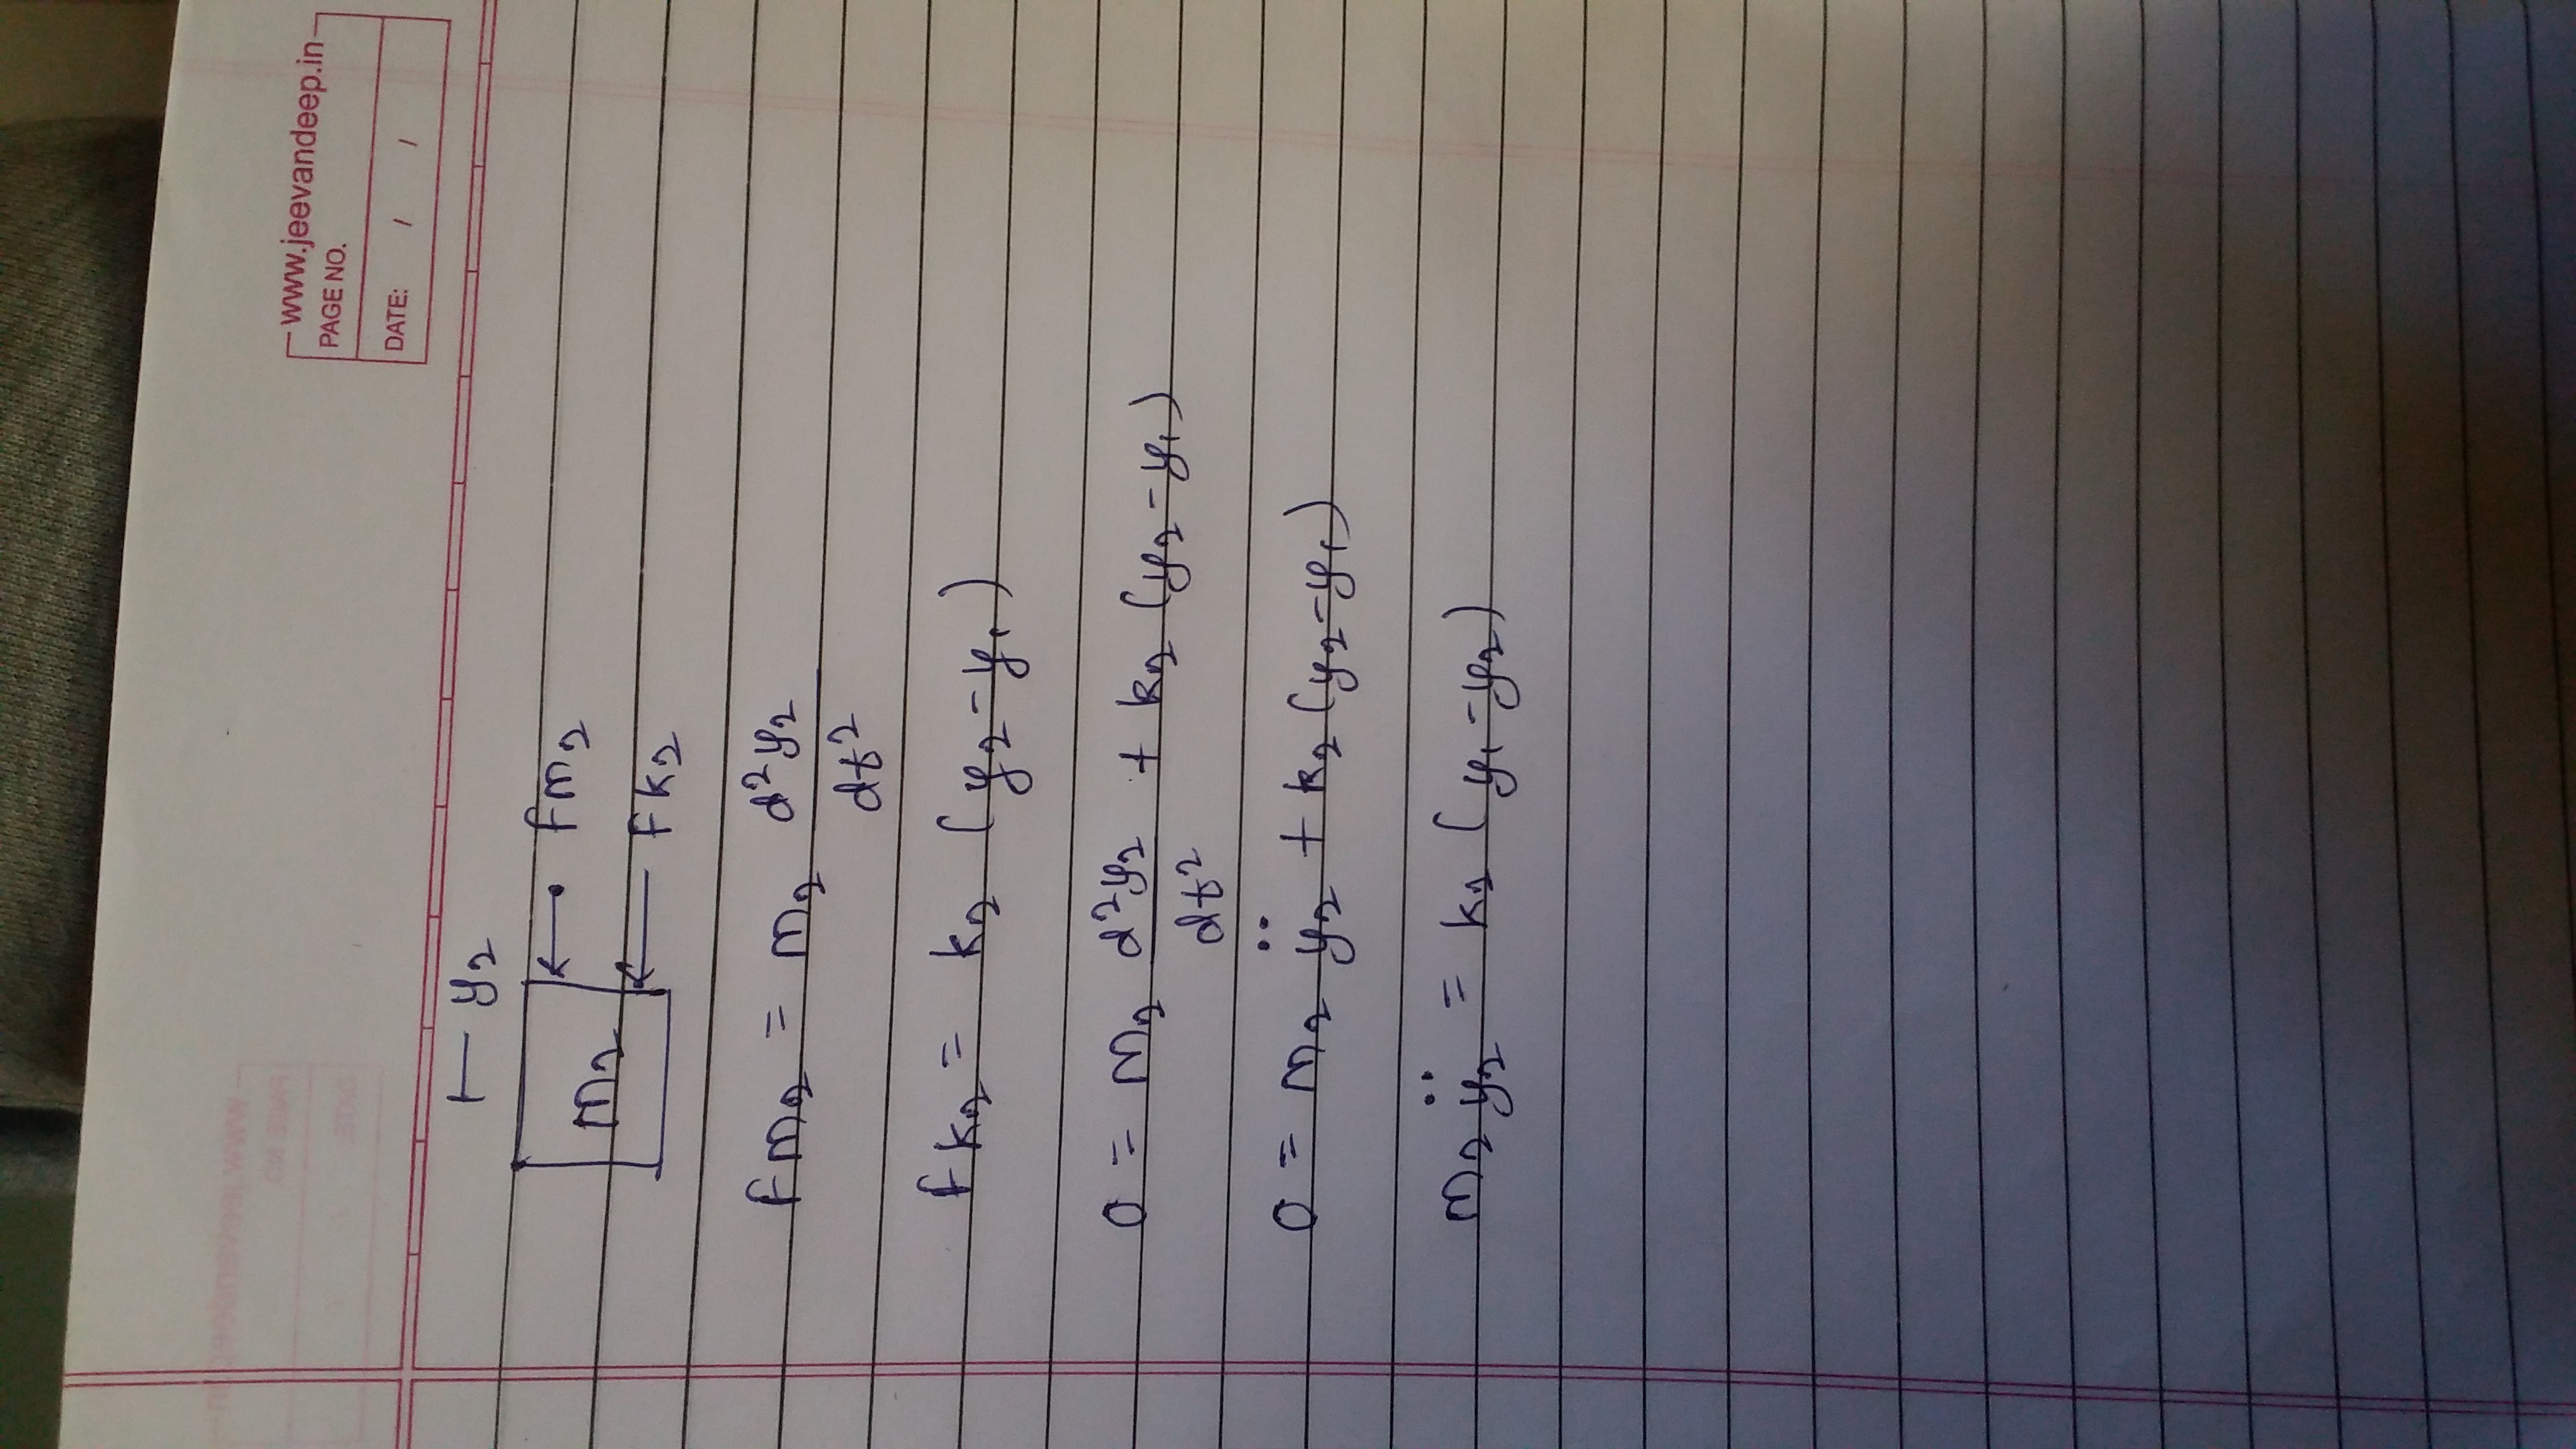 www.jeevandeep.in
PAGE NO.
DATE: / /
y2
m2
fm2
fk2
fm2 = m2 d²y2/dt²
fk2 = k2 (y2-y1)
0 = m2 d²y2/dt² + k2 (y2-y1)
0 = m2 ÿ2 + k2 (y2-y1)
m2 ÿ2 = k2 (y1-y2)